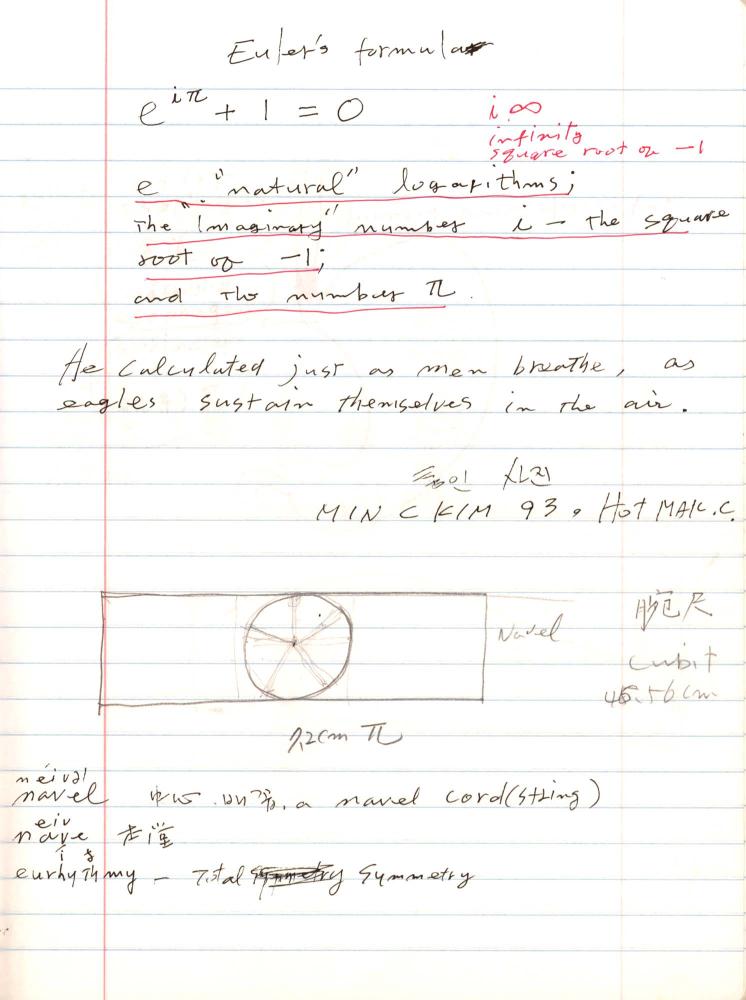 Euler's formula
e^iπ + 1 = 0
i ∞
infinity
square root of -1
e "natural" logarithms;
The "Imaginary" number i – the square
root of -1;
and the number π.
He calculated just as men breathe, as
eagles sustain themselves in the air.
MIN C KIM 93. HOT MAIL.C.
Navel
cubit
45.56cm
7.2cm π
navel 中心 배꼽. a navel cord (string)
nave
eurhythmy – Total Symmetry